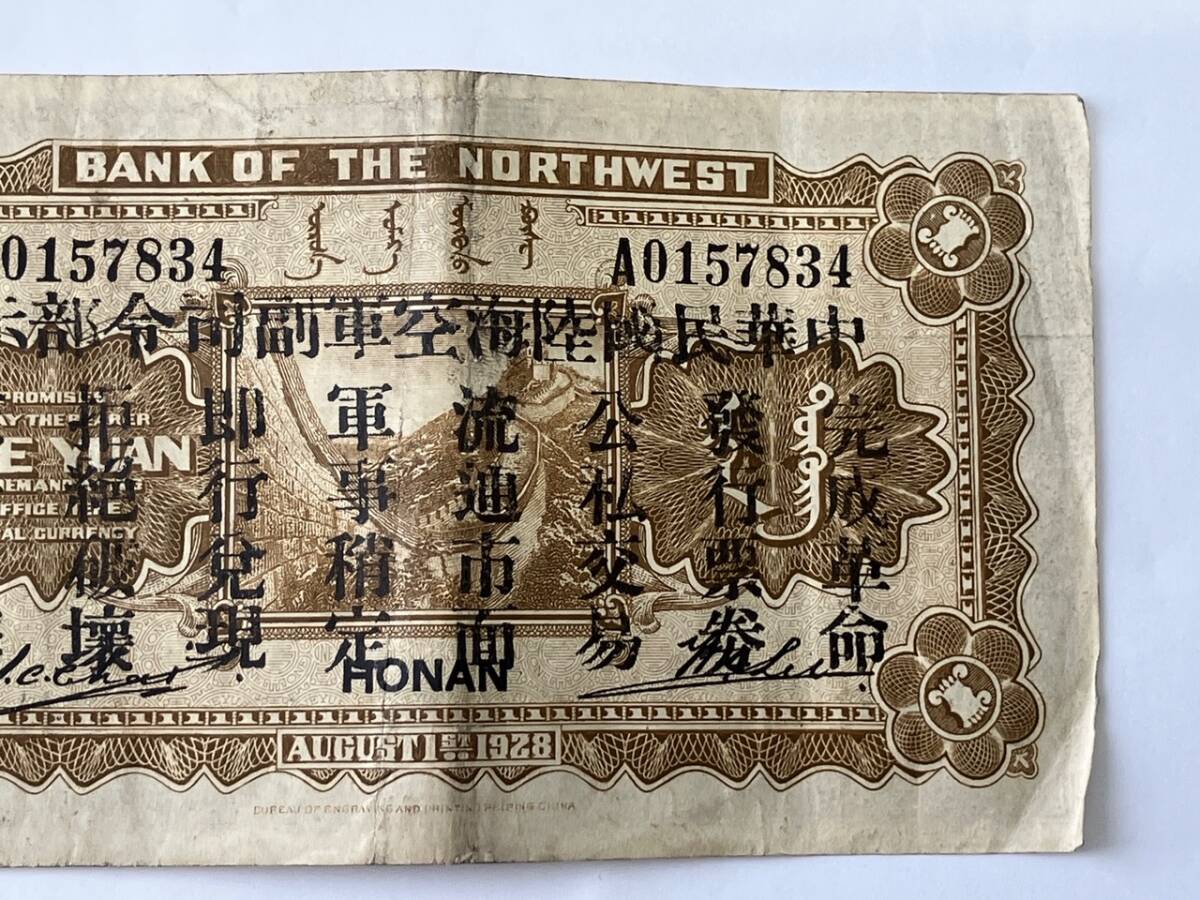 BANK OF THE NORTHWEST
0157834
A0157834
中華民國陸海空軍副司令部
完成革命
發行票券
公私交易
流通市面
軍事稍定
即行兌現
拒絕破壞
PROMISES
AY THE BEARER
E YUAN
DEMAND
OFFICE
AL CURRENCY
HONAN
AUGUST 1ST 1928
BUREAU OF ENGRAVING AND PRINTING PEIPING CHINA